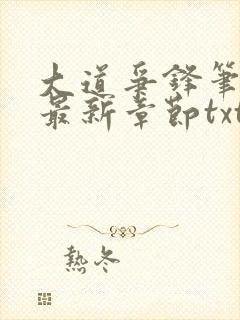 大道爭鋒筆
最新章節txt
熱冬